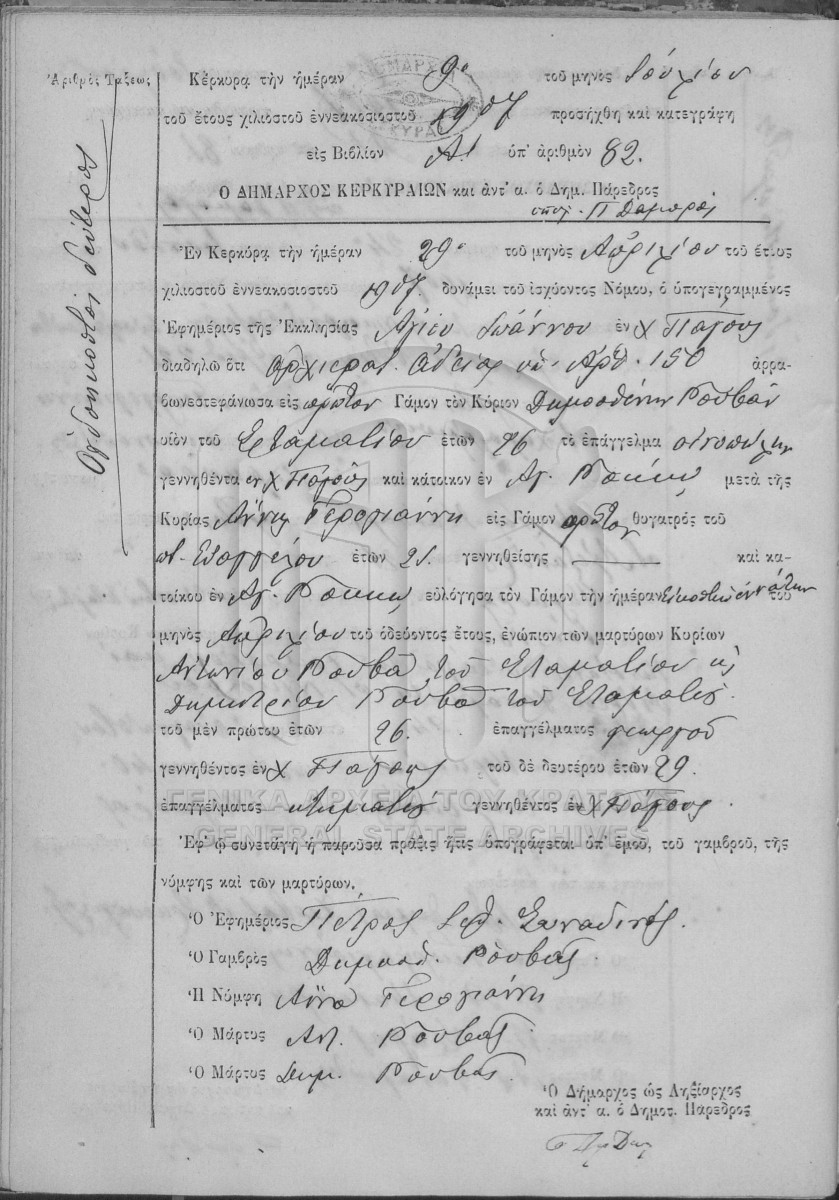 Ἀριθμὸς Τάξεως
Ὀγδοηκοστὸς δεύτερος
Κέρκυρα τὴν ἡμέραν 9ῃ τοῦ μηνος Ἰουλίου
τοῦ ἔτους χιλιοστοῦ ἐννεακοσιοστοῦ 1907 προσήχθη καὶ κατεγράφη
εἰς Βιβλίον Α! ὑπ' ἀριθμὸν 82.
Ο ΔΗΜΑΡΧΟΣ ΚΕΡΚΥΡΑΙΩΝ καὶ ἀντ' α. ὁ Δημ. Πάρεδρος
Ἐν Κερκύρᾳ τὴν ἡμέραν 29ῃ τοῦ μηνὸς Ἀπριλίου τοῦ ἔτους
χιλιοστοῦ ἐννεακοσιοστοῦ 1907. δυνάμει τοῦ ἰσχύοντος Νόμου, ὁ ὑπογεγραμμένος
Ἐφημέριος τῆς Ἐκκλησίας Ἁγίου Ἰωάννου ἐν χ Πάγους
διαδηλῶ ὅτι ἀρχιερατ. ἀδείας ὑπ. Ἀρθ. 150 ἀρρα-
βωνεστεφάνωσα εἰς πρῶτον Γάμον τὸν Κύριον Δημοσθένην Ρουβᾶν
υἱὸν τοῦ Σταματίου ἐτῶν 26 τὸ ἐπάγγελμα οἰνοπώλην
γεννηθέντα εν χ Πάγους καὶ κάτοικον ἐν Ἁγ. Ρόκκῳ μετὰ τῆς
Κυρίας Ἄννης Γερογιάννη εἰς Γάμον πρῶτον θυγατρὸς τοῦ
π. Εὐαγγέλου ἐτῶν 21. γεννηθείσης καὶ κα-
τοίκου ἐν Ἁγ. Ρόκκῳ εὐλόγησα τὸν Γάμον τὴν ἡμέραν Εἰκοστὴν ἐννάτην τοῦ
μηνὸς Ἀπριλίου τοῦ ὁδεύοντος ἔτους, ἐνώπιον τῶν μαρτύρων Κυρίων
Ἀντωνίου Ρουβᾶ τοῦ Σταματίου κ
Δημητρίου Ρουβᾶ τοῦ Σταματίου.
τοῦ μὲν πρώτου ἐτῶν 26. ἐπαγγέλματος γεωργοῦ
γεννηθέντος ἐν χ Πάγους τοῦ δὲ δευτέρου ἐτῶν 29.
ἐπαγγέλματος κτηματίου γεννηθέντος ἐν χ Πάγους.
ΓΕΝΙΚΑ ΑΡΧΕΙΑ ΤΟΥ ΚΡΑΤΟΥΣ
GENERAL STATE ARCHIVES
Ἐφ' ᾧ συνετάγη ἡ παροῦσα πρᾶξις ἥτις ὑπογράφεται ὑπ' ἐμοῦ, τοῦ γαμβροῦ, τῆς
νύμφης καὶ τῶν μαρτύρων.
Ὁ Ἐφημέριος Πέτρος Συναδινός.
Ὁ Γαμβρὸς Δημοσθ. Ρουβᾶς.
Ἡ Νύμφη Ἄννα Γερογιάννη
Ὁ Μάρτυς Αντ. Ρουβᾶς.
Ὁ Μάρτυς Δημ. Ρουβᾶς.
Ὁ Δήμαρχος ὡς Ληξίαρχος
καὶ ἀντ' α. ὁ Δημοτ. Πάρεδρος